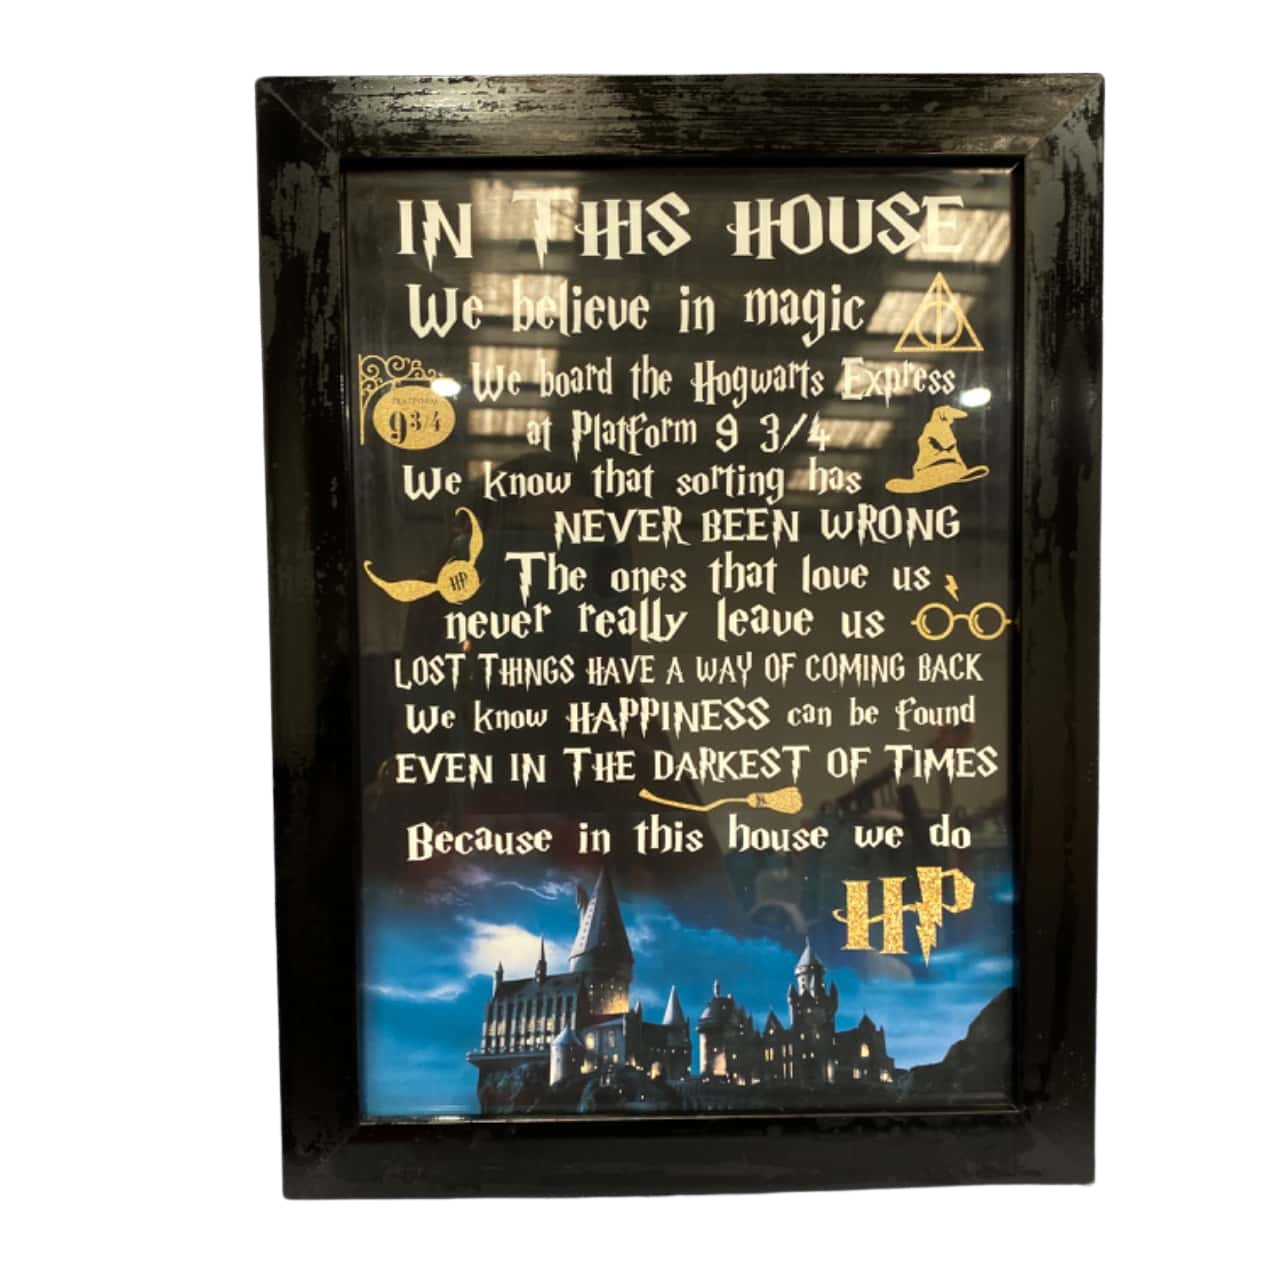 IN THIS HOUSE
We believe in magic
We board the Hogwarts Express
PLATFORM
9 3/4
at Platform 9 3/4
We know that sorting has
NEVER BEEN WRONG
HP
The ones that love us
never really leave us
LOST THINGS HAVE A WAY OF COMING BACK
We know HAPPINESS can be found
EVEN IN THE DARKEST OF TIMES
Because in this house we do
HP